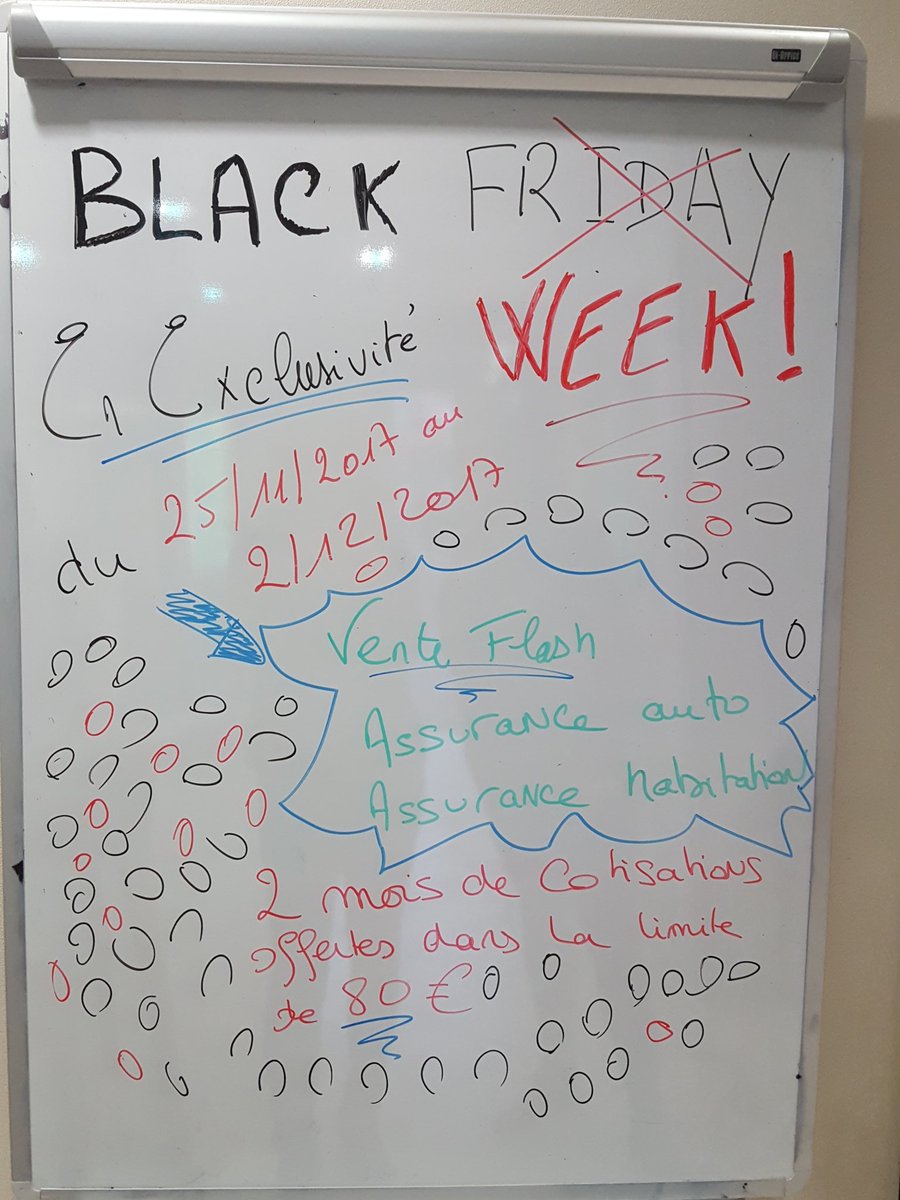 BI-OFFICE
BLACK FRIDAY
WEEK!
En Exclusivité
du 25/11/2017 au
2/12/2017
Vente Flash
Assurance auto
Assurance habitation
2 mois de cotisations
offertes dans la limite
de 80 €